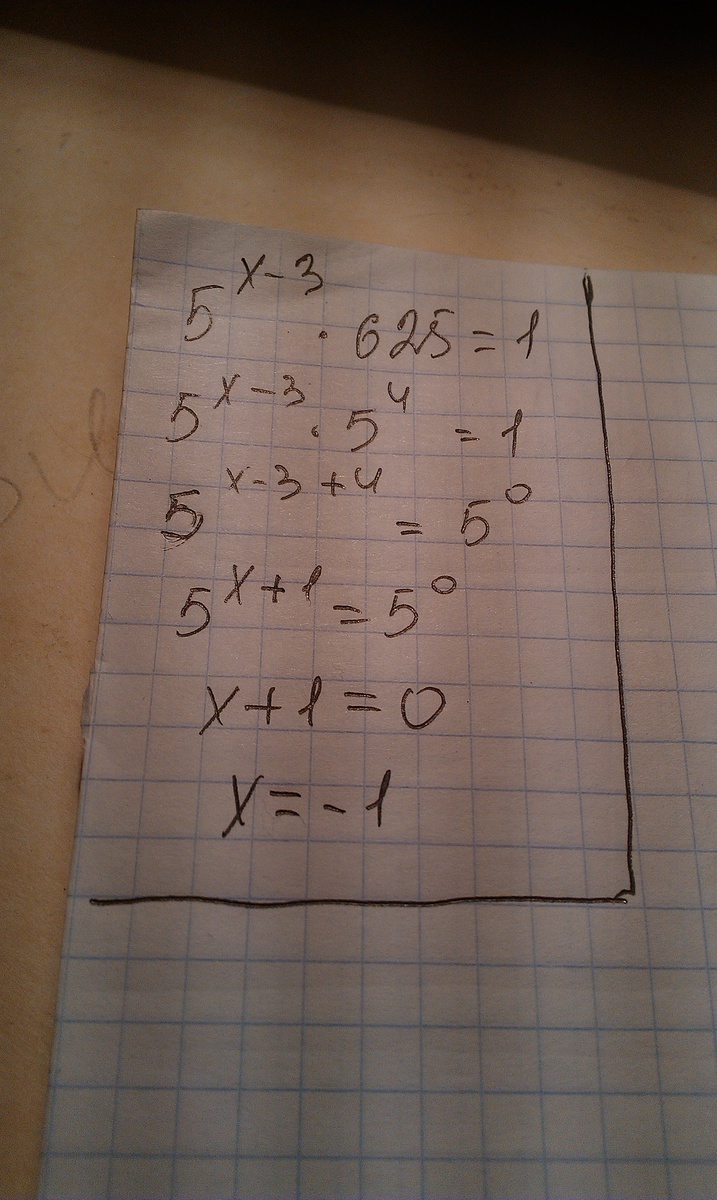 5^{x-3} · 625 = 1
5^{x-3} · 5^4 = 1
5^{x-3+4} = 5^0
5^{x+1} = 5^0
x+1=0
x=-1